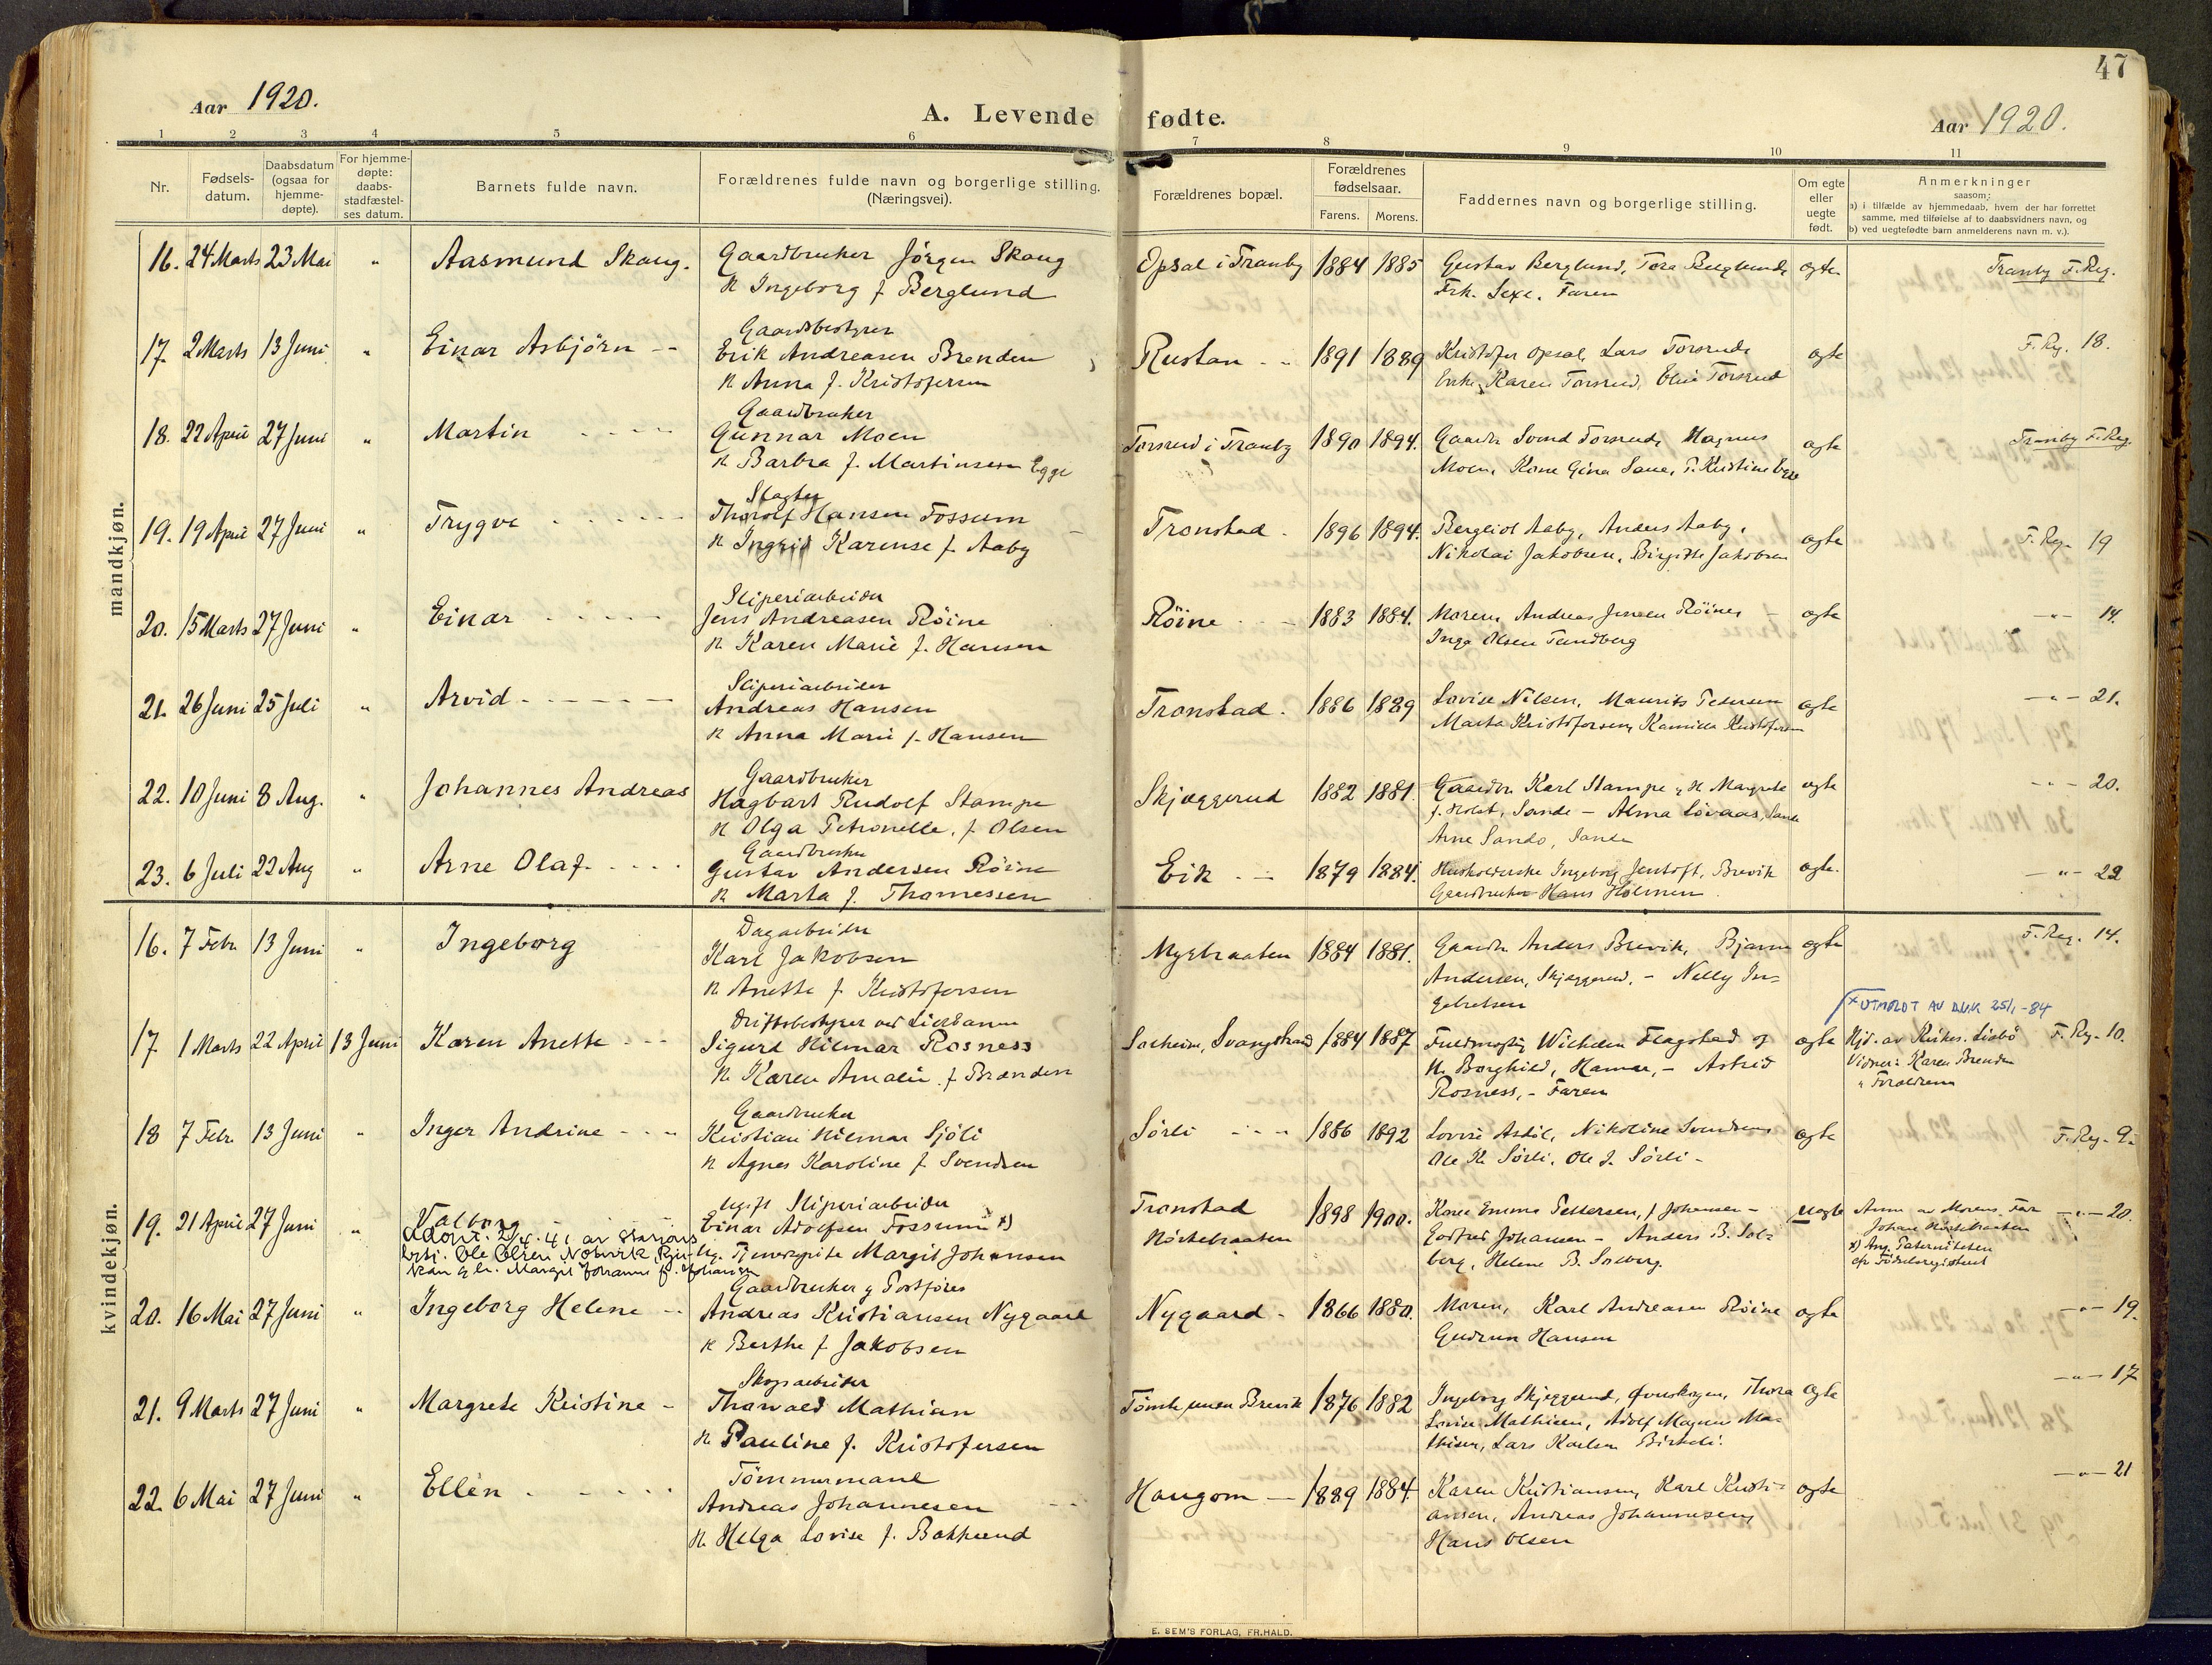 47
Aar 1920.
A. Levende fødte.
Aar 1920.
1 2 3 4 5 6 7 8 9 10 11
Nr.
Fødsels-
datum.
Daabsdatum
(ogsaa for
hjemme-
døpte).
For hjemme-
døpte:
daabs-
stadfæstel-
ses datum.
Barnets fulde navn.
Forældrenes fulde navn og borgerlige stilling.
(Næringsvei).
Forældrenes bopæl.
Forældrenes
fødselsaar.
Farens. Morens.
Faddernes navn og borgerlige stilling.
Om egte
eller
uegte
født.
Anmerkninger
saasom:
a) i tilfælde av hjemmedaab, hvem der har forrettet
samme, med tilføielse af to daabsvidners navn, og
b) ved uegtefødte barn anmelderens navn m. v.).
mandkjøn.
16. 24 Marts 23 Mai " Aasmund Skaug.
Gaardbruker Jørgen Skaug
K Ingeborg f Berglund
Opsal i Tranby 1884 1885
Gustav Berglund, Tora Berglund,
Frk. Sexe. Faren
egte
Tranby F.Reg.
17. 2 Marts 13 Juni " Einar Asbjørn --
Gaardsbestyrer
Erik Andreasen Brenden
K Anna f. Kristofersen
Rustan - - 1891 1889
Kristofer Opsal, Lars Torsrud,
Enke Karen Torsrud, Elise Torsrud
egte
F. Reg. 18.
18. 22 April 27 Juni " Martin - - - -
Gaardbruker
Gunnar Moen
K Barbra f. Martinsen Egge
Torsrud i Tranby 1890 1894.
Gaardbr Svend Torsrud, Magnus
Moen, Kone Gina Saue, P. Kristine Egge
egte
Tranby F.Reg.
19. 19 April 27 Juni " Trygve - - - - - -
Slagter
Thorolf Hansen Fossum
K Ingrid Karense f. Aaby
Tronstad - 1896 1894.
Bergliot Aaby, Anders Aaby,
Nikolai Jakobsen, Birgitte Jakobsen
egte
F. Reg. 19
20. 15 Marts 27 Juni " Einar - - - - -
Sliperiarbeider
Jens Andreasen Røine
K. Karen Marie f. Hansen
Røine - - - 1883 1884.
Moren, Andreas Jensen Røine,
Inga Olsen Tandberg
egte
-"- 14.
21. 26 Juni 25 Juli " Arvid - - - - - -
Sliperiarbeider
Andreas Hansen
K Anna Marie f. Hansen
Tronstad. 1886 1889
Lovise Nilsen, Maurits Petersen
Marta Kristofersen, Kamilla Kristofersen
egte
-"- 21.
22. 10 Juni 8 Aug. " Johannes Andreas
Gaardbruker
Hagbart Rudolf Stampe
K Olga Petronelle, f. Olsen
Skjæggerud 1882 1881.
Gaardbr. Karl Stampe, K Margrete
f. Holst, Sande - Alma Løvaas, Sande
Arne Sando, Sande
egte
-"- 20.
23. 6 Juli 22 Aug " Arne Olaf - - - -
Gaardbruker
Gustav Andersen Røine
K Marta f. Thomessen
Eik - - 1879 1884.
Husholderske Ingeborg Jentoft, Brevik
Gaardbruker Hans Holmen
egte.
-"- 22
kvindekjøn.
16. 7 Febr 13 Juni " Ingeborg
Dagarbeider
Karl Jakobsen
K Anette f Kristofersen
Myrbraaten 1884 1881.
Gaardbr Anders Brevik, Bjarne
Andersen, Skjæggerud. - Nelly In-
gebretsen
egte
F. Reg. 14.
17. 1 Marts 22 April 13 Juni Karen Anette - - -
Driftsbestyrer ved Lierbanen
Sigurd Hilmar Rosness
K. Karen Amalie f Brenden
Solheim, Svangstrand 1884 1887
Fuldmægtig Wilhelm Flagstad og
K. Borghild, Hamar, - Astrid
Rosness, - Faren
egte
x UTMELDT AV DNK 25/1-84
Hjd. av Kirkes. Lisbö
Vidner: Karen Brenden
" Foraldrene
F. Reg. 10.
18 7 Febr. 13 Juni " Inger Andrine - - -
Gaardbruker
Kristian Hilmar Sjöli
K Agnes Karoline f Svendsen
Sörli - - - 1886 1892
Lovise Asdöl, Nikoline Svendsen,
Ole K. Sörli, Ole J. Sörli -
egte
F. Reg. 9.
19. 21 April 27 Juni " Valborg
Adopt. 2/4-41 av Stasjons
Ole Olsen
K. Margit Johanne f. Johansen
Ugift Sliperiarbeider
Einar Adolfsen Fossum x)
Ug. Tjenestepike Margit Johansen
Tronstad
Nörstebraaten
1898 1900.
Karen Emma Pettersen, f Johansen -
Godtfred Johansen - Anders B. Sol-
berg, Helene B. Solberg.
uegte
Anm av Morens Far
Johan Nörstebraaten
x) Ang. Paterniteten
cfr Födselsregisteret
-"- 20.
20. 16 Mai 27 Juni " Ingeborg Helene - -
Gaardbruker & Postförer
Andreas Kristiansen Nygaard
K Berthe f Jakobsen
Nygaard - 1866 1880.
Moren, Karl Andreasen Röine
Gudrun Hansen
egte
-"- 19.
21. 9 Marts 27 Juni " Margrete Kristine -
Skogsarbeider
Thorvald Mathisen
K. Pauline f. Kristofersen
Tömte, unen Brevik 1876 1882
Ingeborg Skjæggerud, Övreskogen, Thora
Lovise Mathisen, Adolf Magnus Ma-
thisen, Lars Karlsen Birkeli.
egte
-"- 17
22. 6 Mai 27 Juni " Ellen - - - - -
Tömmermand
Andreas Johannesen
K. Helga Lovise f. Bakkerud
Haugom - 1889 1884.
Karen Kristiansen, Karl Kristi-
ansen, Andreas Johannesen,
Hans Olsen
egte
-"- 21
E. SEM'S FORLAG, FR.HALD.